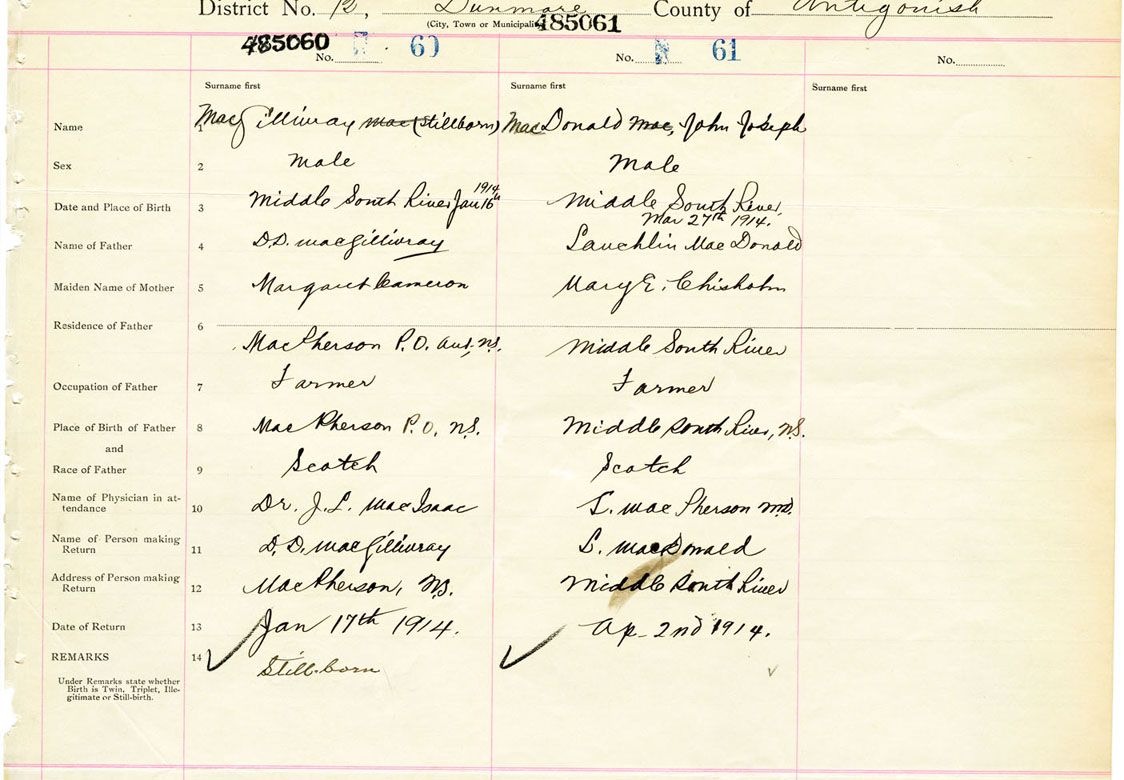 District No. 12, Dunmore County of Antigonish
(City, Town or Municipality)
485060 485061
No. 60 No. 61 No.
Surname first Surname first Surname first
Name 1 MacGillivray Mac (Stillborn) MacDonald Mac, John Joseph
Sex 2 Male Male
1914
Date and Place of Birth 3 Middle South River Jan 16th Middle South River,
Mar 27th 1914.
Name of Father 4 D.D. MacGillivray Lauchlin MacDonald
Maiden Name of Mother 5 Margaret Cameron Mary E. Chisholm
Residence of Father 6
MacPherson P.O. Ant. N.S. Middle South River
Occupation of Father 7 Farmer Farmer
Place of Birth of Father 8 MacPherson P.O, N.S. Middle South River, N.S.
and
Race of Father 9 Scotch Scotch
Name of Physician in at-
tendance 10 Dr. J.L. MacIsaac MacPherson M.D.
Name of Person making
Return 11 D.D. MacGillivray L. MacDonald
Address of Person making
Return 12 MacPherson, N.S. Middle South River
Date of Return 13 Jan 17th 1914. Ap. 2nd 1914.
REMARKS 14 Still-born
Under Remarks state whether
Birth is Twin, Triplet, Ille-
gitimate or Still-birth.